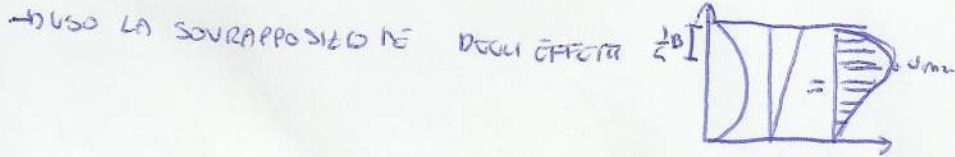 → USO LA SOVRAPPOSIZIONE DEGLI EFFETTI ½B
=